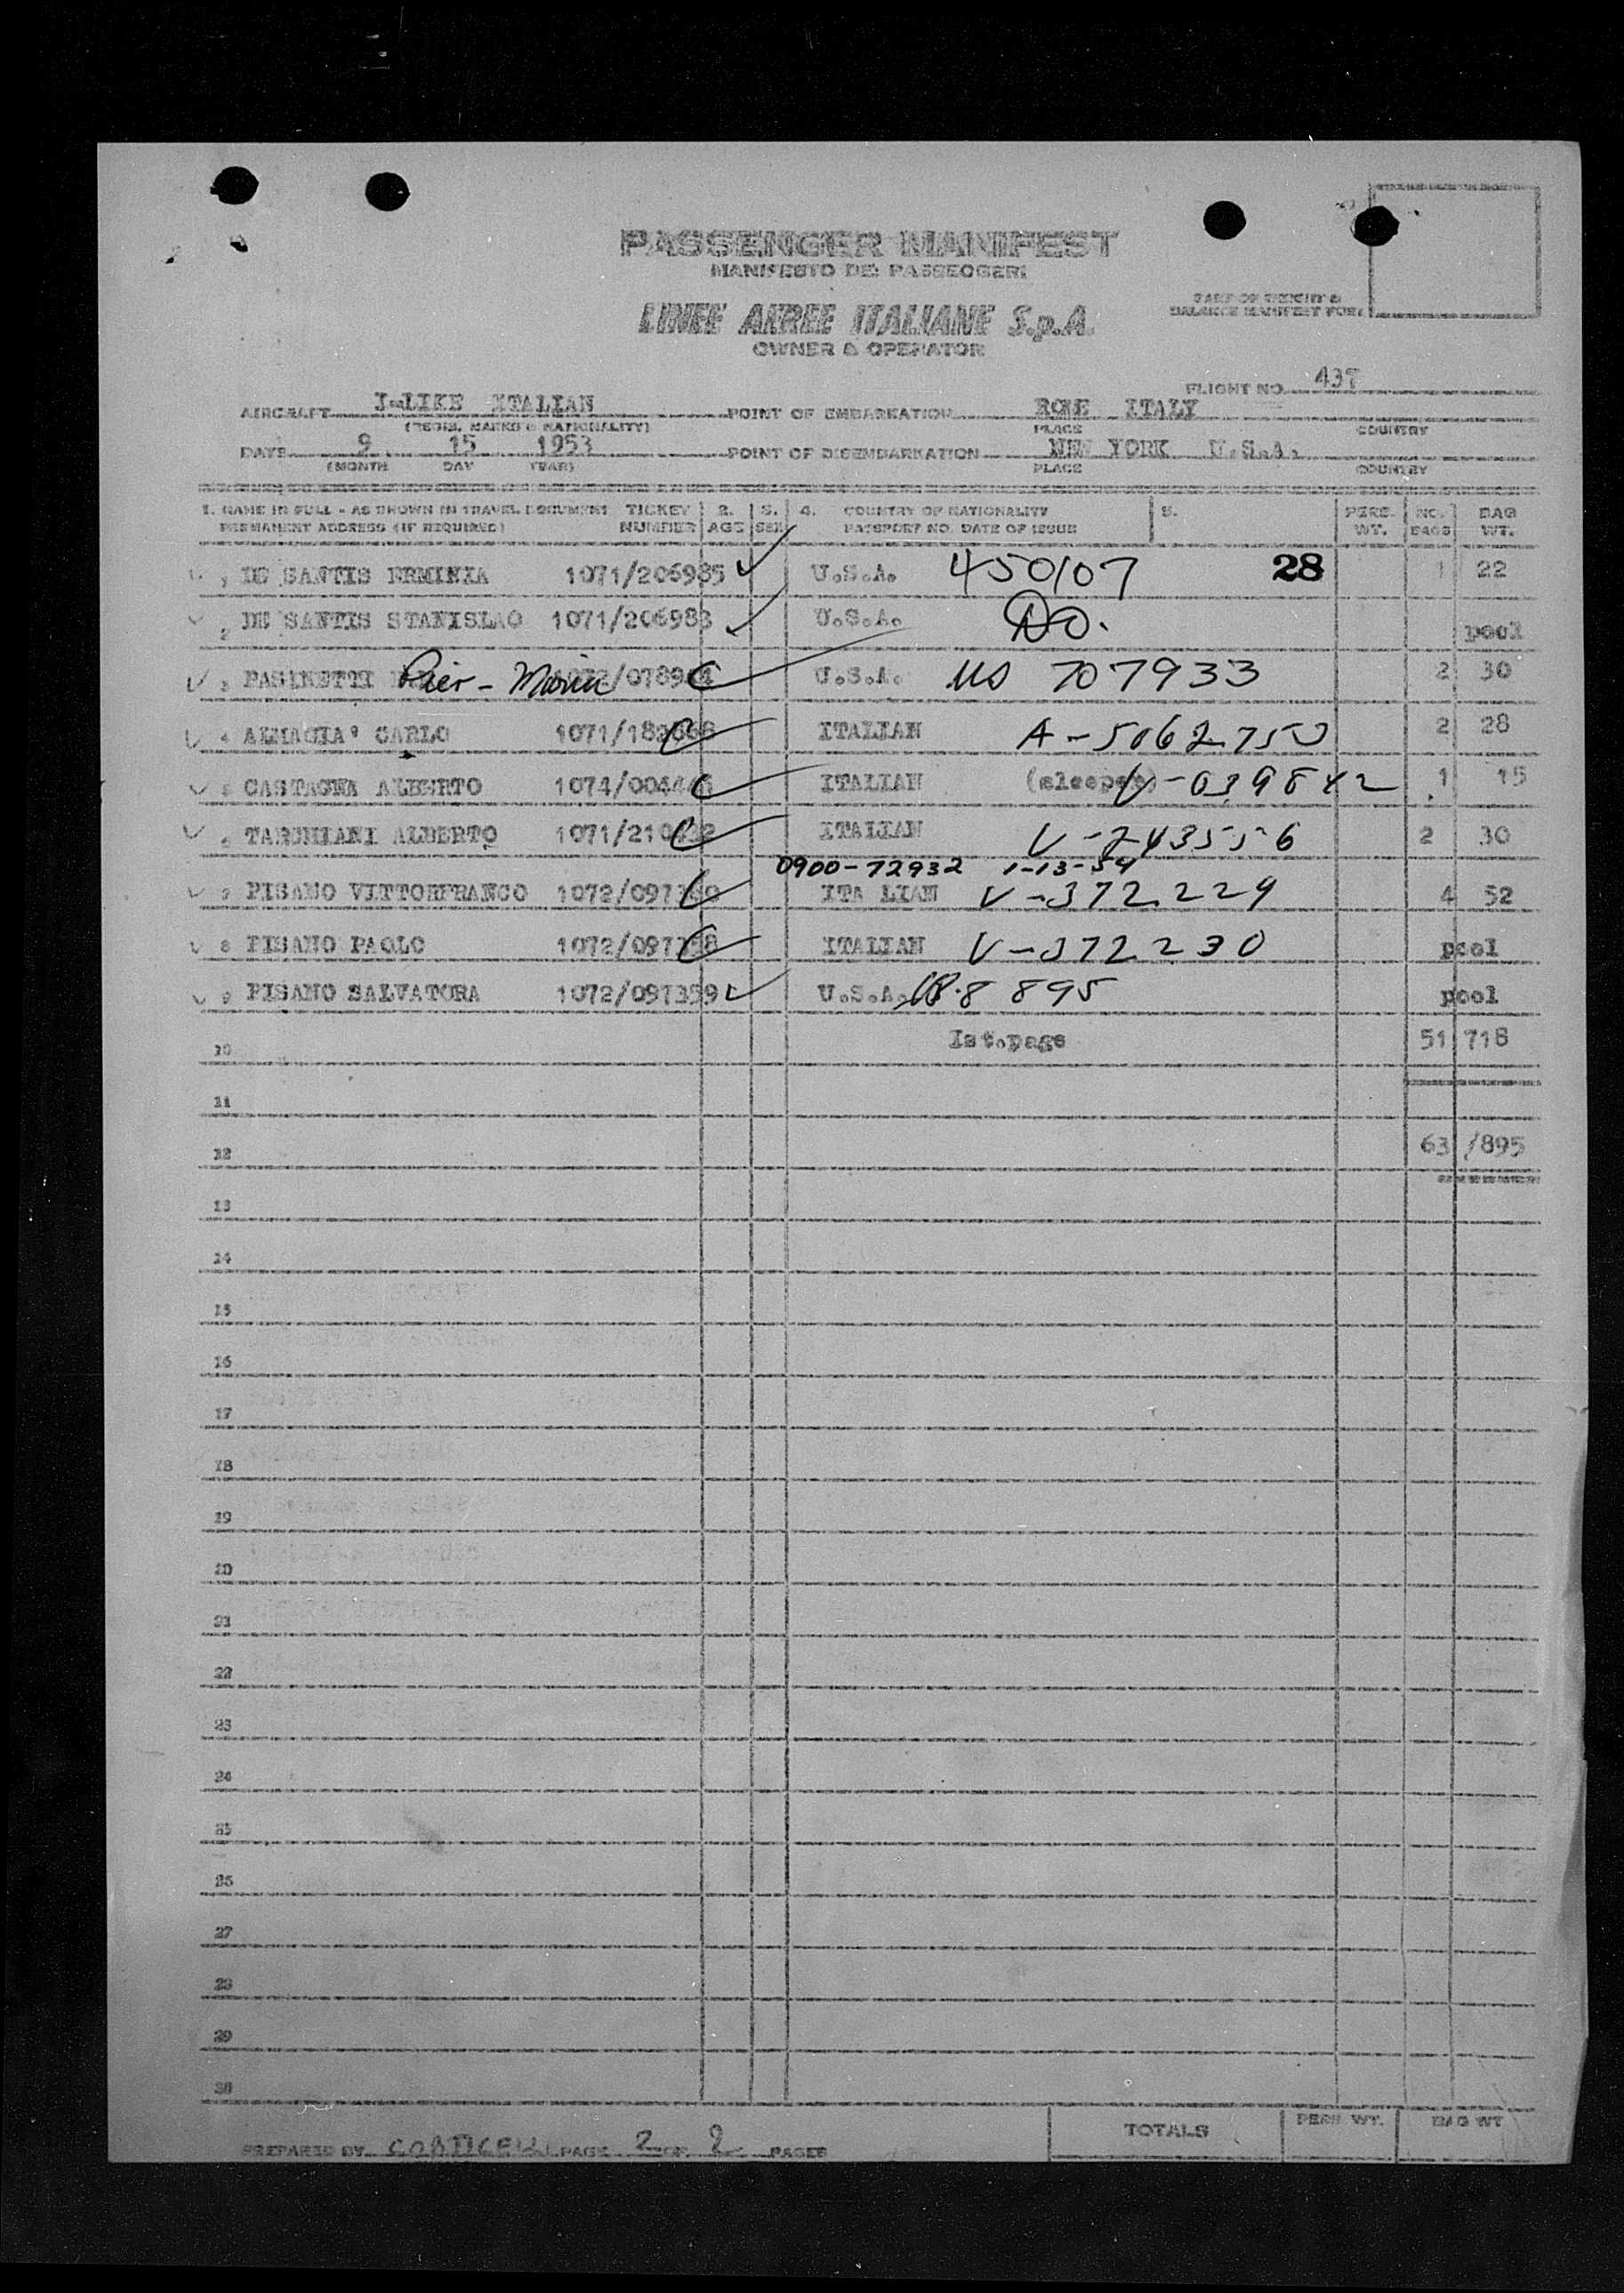 PASSENGER MANIFEST
MANIFESTO DEI PASSEGGERI
LINEE AEREE ITALIANE S.p.A.
OWNER & OPERATOR
PART OF WEIGHT &
BALANCE MANIFEST FOR:
FLIGHT NO. 437
AIRCRAFT I-LIKE ITALIAN POINT OF EMBARKATION ROME ITALY
(REGIS. MARKS & NATIONALITY) PLACE COUNTRY
DATE 9 15 1953 POINT OF DISEMBARKATION NEW YORK U.S.A.
(MONTH DAY YEAR) PLACE COUNTRY
1. NAME IN FULL - AS SHOWN IN TRAVEL DOCUMENT TICKET 2. 3. 4. COUNTRY OF NATIONALITY 5. PERS. NO. BAG
PERMANENT ADDRESS (IF REQUIRED) NUMBER AGE SEX PASSPORT NO. DATE OF ISSUE WT. BAGS WT.
1 DE SANTIS ERMINIA 1071/206985 U.S.A. 450107 28 1 22
2 DE SANTIS STANISLAO 1071/206983 U.S.A. DO. pool
3 PASINETTI Pier-Maria /0789 U.S.A. US 707933 2 30
4 ALMAGIA' CARLO 1071/182 ITALIAN A-5062750 2 28
5 CASTAGNA ALBERTO 1074/00444 ITALIAN (sleeper) V-039842 1 15
6 TARCHIANI ALBERTO 1071/210 ITALIAN V-243556 2 30
0900-72932 1-13-54
7 PISANO VITTORFRANCO 1072/097 ITA LIAN V-372229 4 52
8 PISANO PAOLO 1072/097 ITALIAN V-372230 pool
9 PISANO SALVATORA 1072/097359 U.S.A. 8895 pool
10 Ist.page 51 718
11
12 63 /895
13
14
15
16
17
18
19
20
21
22
23
24
25
26
27
28
29
30
PREPARED BY CORTICELLI PAGE 2 OF 2 PAGES TOTALS PERS. WT. BAG WT